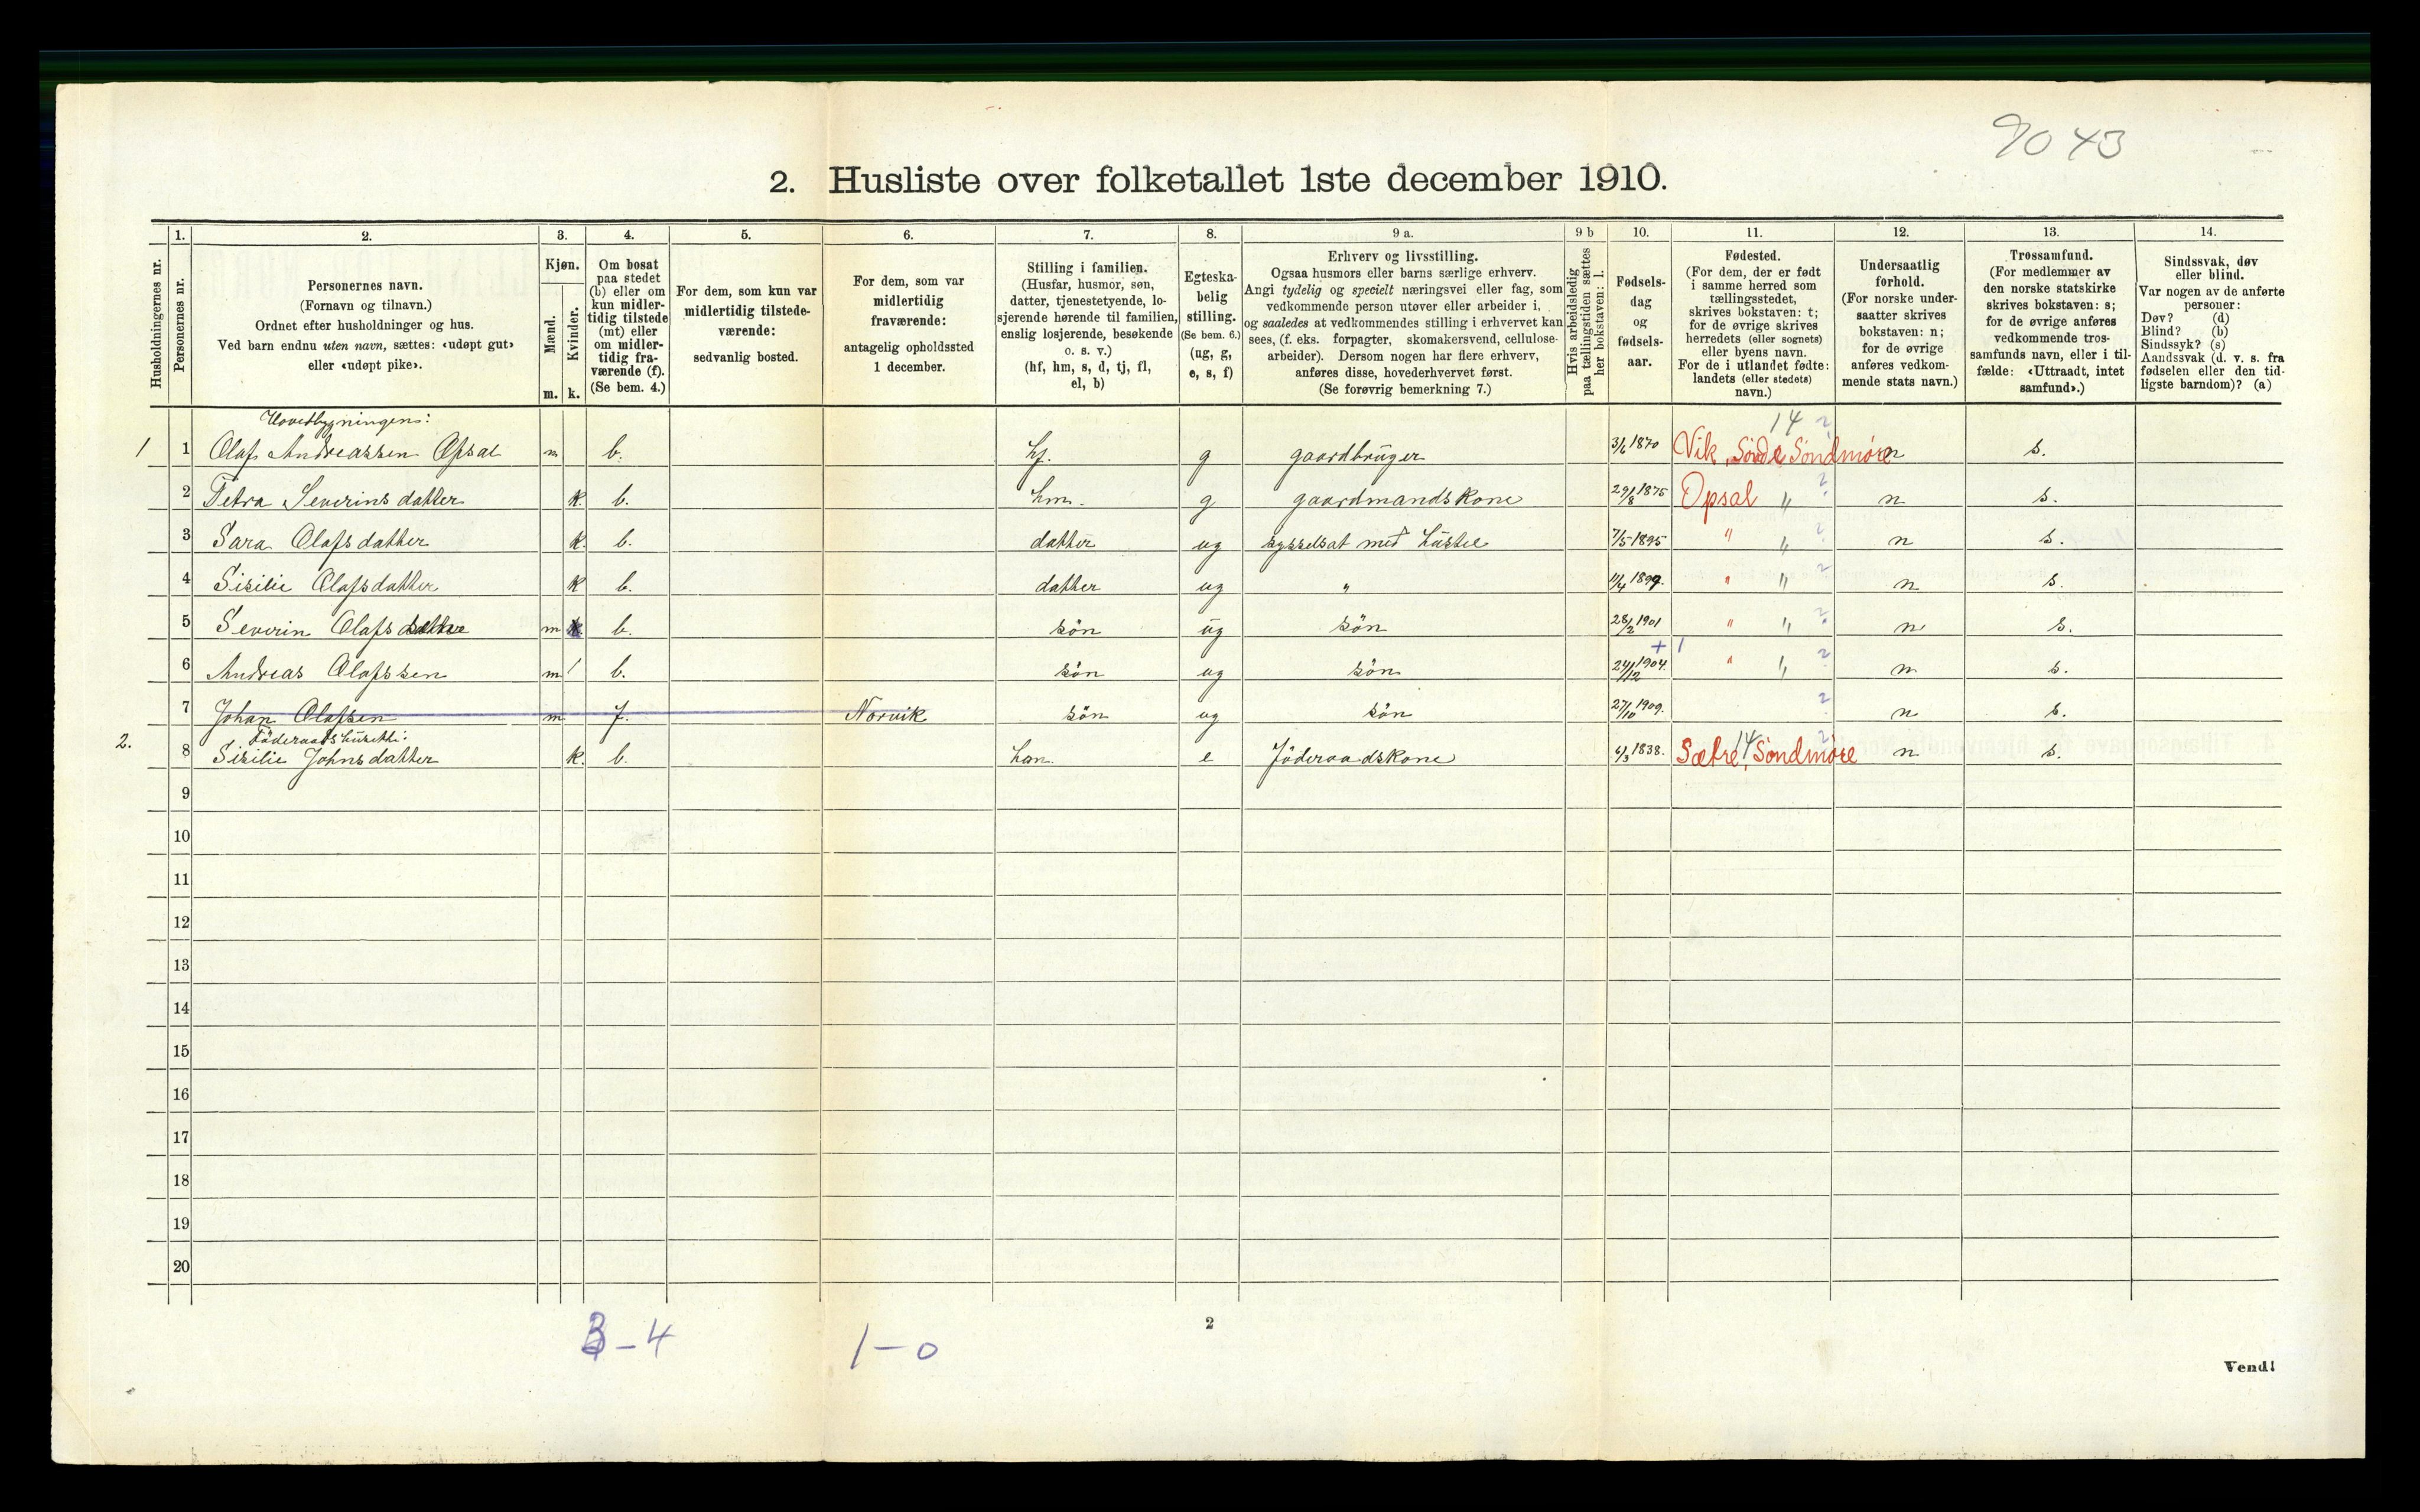 9043
2. Husliste over folketallet 1ste december 1910.
Husholdningernes nr.
1.
Personernes nr.
2.
Personernes navn.
(Fornavn og tilnavn.)
Ordnet efter husholdninger og hus.
Ved barn endnu uten navn, sættes: «udøpt gut»
eller «udøpt pike».
3.
Kjøn.
Mænd.
Kvinder.
m. k.
4.
Om bosat
paa stedet
(b) eller om
kun midler-
tidig tilstede
(mt) eller
om midler-
tidig fra-
værende (f).
(Se bem. 4.)
5.
For dem, som kun var
midlertidig tilstede-
værende:
sedvanlig bosted.
6.
For dem, som var
midlertidig
fraværende:
antagelig opholdssted
1 december.
7.
Stilling i familien.
(Husfar, husmor, søn,
datter, tjenestetyende, lo-
sjerende hørende til familien,
enslig losjerende, besøkende
o. s. v.)
(hf, hm, s, d, tj, fl,
el, b)
8.
Egteska-
belig
stilling.
(Se bem. 6.)
(ug, g,
e, s, f)
9 a.
Erhverv og livsstilling.
Ogsaa husmors eller barns særlige erhverv.
Angi tydelig og specielt næringsvei eller fag, som
vedkommende person utøver eller arbeider i,
og saaledes at vedkommendes stilling i erhvervet kan
sees, (f. eks. forpagter, skomakersvend, cellulose-
arbeider). Dersom nogen har flere erhverv,
anføres disse, hovederhvervet først.
(Se forøvrig bemerkning 7.)
9 b
Hvis arbeidsledig
paa tællingstiden sættes
her bokstaven: l.
10.
Fødsels-
dag
og
fødsels-
aar.
11.
Fødested.
(For dem, der er født
i samme herred som
tællingsstedet,
skrives bokstaven: t;
for de øvrige skrives
herredets (eller sognets)
eller byens navn.
For de i utlandet fødte:
landets (eller stedets)
navn.)
12.
Undersaatlig
forhold.
(For norske under-
saatter skrives
bokstaven: n;
for de øvrige
anføres vedkom-
mende stats navn.)
13.
Trossamfund.
(For medlemmer av
den norske statskirke
skrives bokstaven: s;
for de øvrige anføres
vedkommende tros-
samfunds navn, eller i til-
fælde: «Uttraadt, intet
samfund».)
14.
Sindssvak, døv
eller blind.
Var nogen av de anførte
personer:
Døv? (d)
Blind? (b)
Sindssyk? (s)
Aandssvak (d. v. s. fra
fødselen eller den tid-
ligste barndom)? (a)
Hovedbygningen: 14 ?
1 1 Olaf Andreassen Opsal m b. hf. g gaardbruger 3/6 1870 Vik, Søndmøre n s.
2 Petra Severinsdatter k. b. hm. g gaardmandskone 29/8 1875 Opsal " ? n s.
3 Sara Olafsdatter k. b. datter ug sysselsat med hüstel 7/5 1895 " " ? n s.
4 Sisilie Olafsdatter k b. datter ug " 11/4 1899. " " ? n s.
5 Severin Olafs datter m k b. sön ug sön 28/2 1901 " " ? n s.
6 Andreas Olafssen m 1 b. sön ug sön 24/12 1904. + 1 " " ? n s.
7 Johan Olafsen m f. Norvik sön ug sön 27/10 1909. ? n s.
Föderaadshusetti:
2. 8 Sisilie Johnsdatter k. b. e Föderaadskone 4/3 1838. Sætre, Søndmøre 14 ? n s.
9
10
11
12
13
14
15
16
17
18
19
20
3-4 1-0
2
Vend!